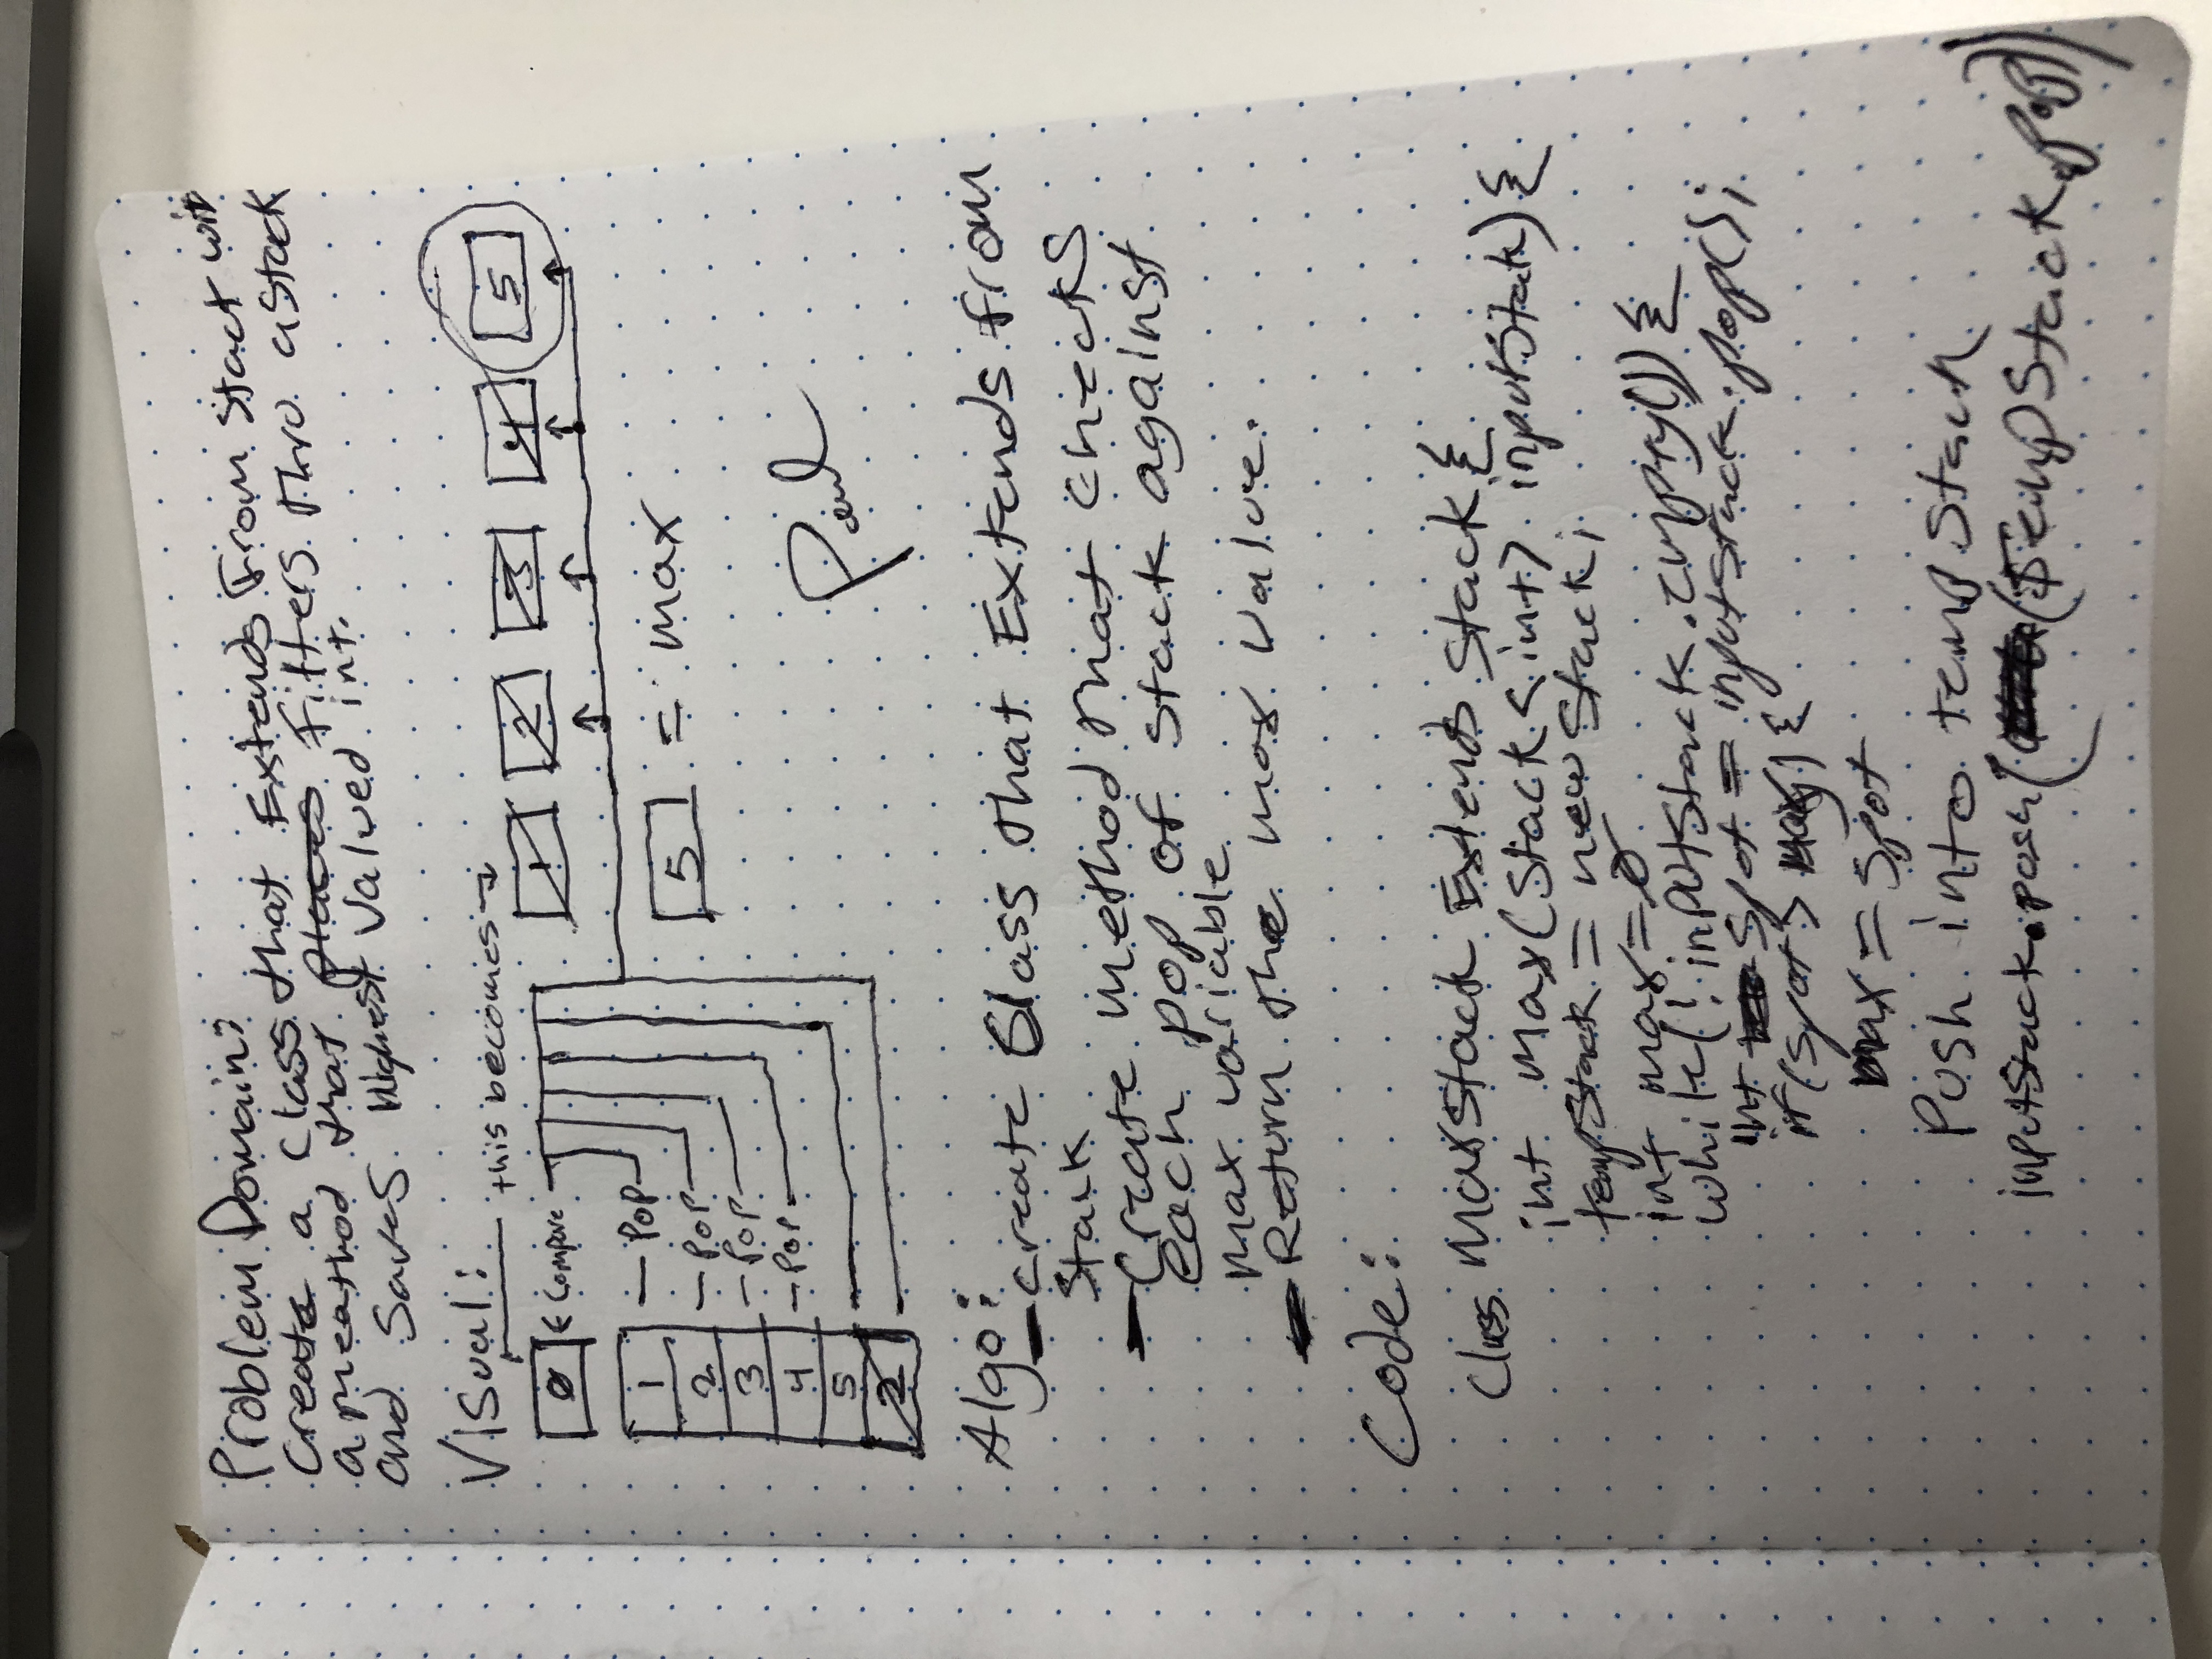 Problem Domain:
Create a Class that Extends From Stack with
a meathod that places Filters thro a Stack
and Saves Highest Valued int.
Visual:
this becomes
0 ← Compare
1 2 3 4 5
1 — Pop
2 — Pop
3 — Pop
4 — Pop
5
2
5 = max
Paul
Algo:
- create Class that Extends from
Stack
- Create method that checks
each pop of stack against
max variable
- Return the max value.
Code:
Class MaxStack Extends Stack {
int max(Stack<int> inputStack) {
tempStack = new Stack;
int max = 0
while(! inputStack.empty()) {
int spot = inputStack.pop();
if (spot > max) {
max = spot
Push into temp Stack
inputStack.push((tempStack.pop))